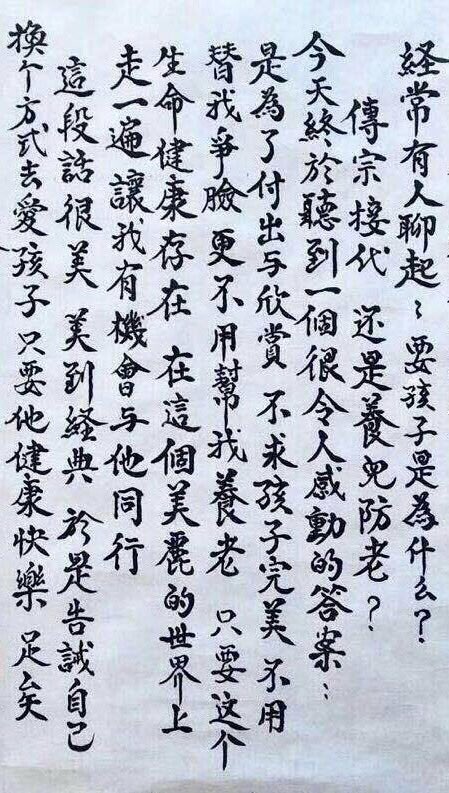 経常有人聊起：要孩子是為什么？
傳宗接代 还是養兒防老？
今天終於聽到一個很令人感動的答案：
是為了付出与欣賞 不求孩子完美 不用
替我爭臉 更不用幫我養老 只要这个
生命健康存在 在這個美麗的世界上
走一遍 讓我有機會与他同行
這段話很美 美到経典 於是告誡自己
換个方式去愛孩子 只要他健康快樂 足矣